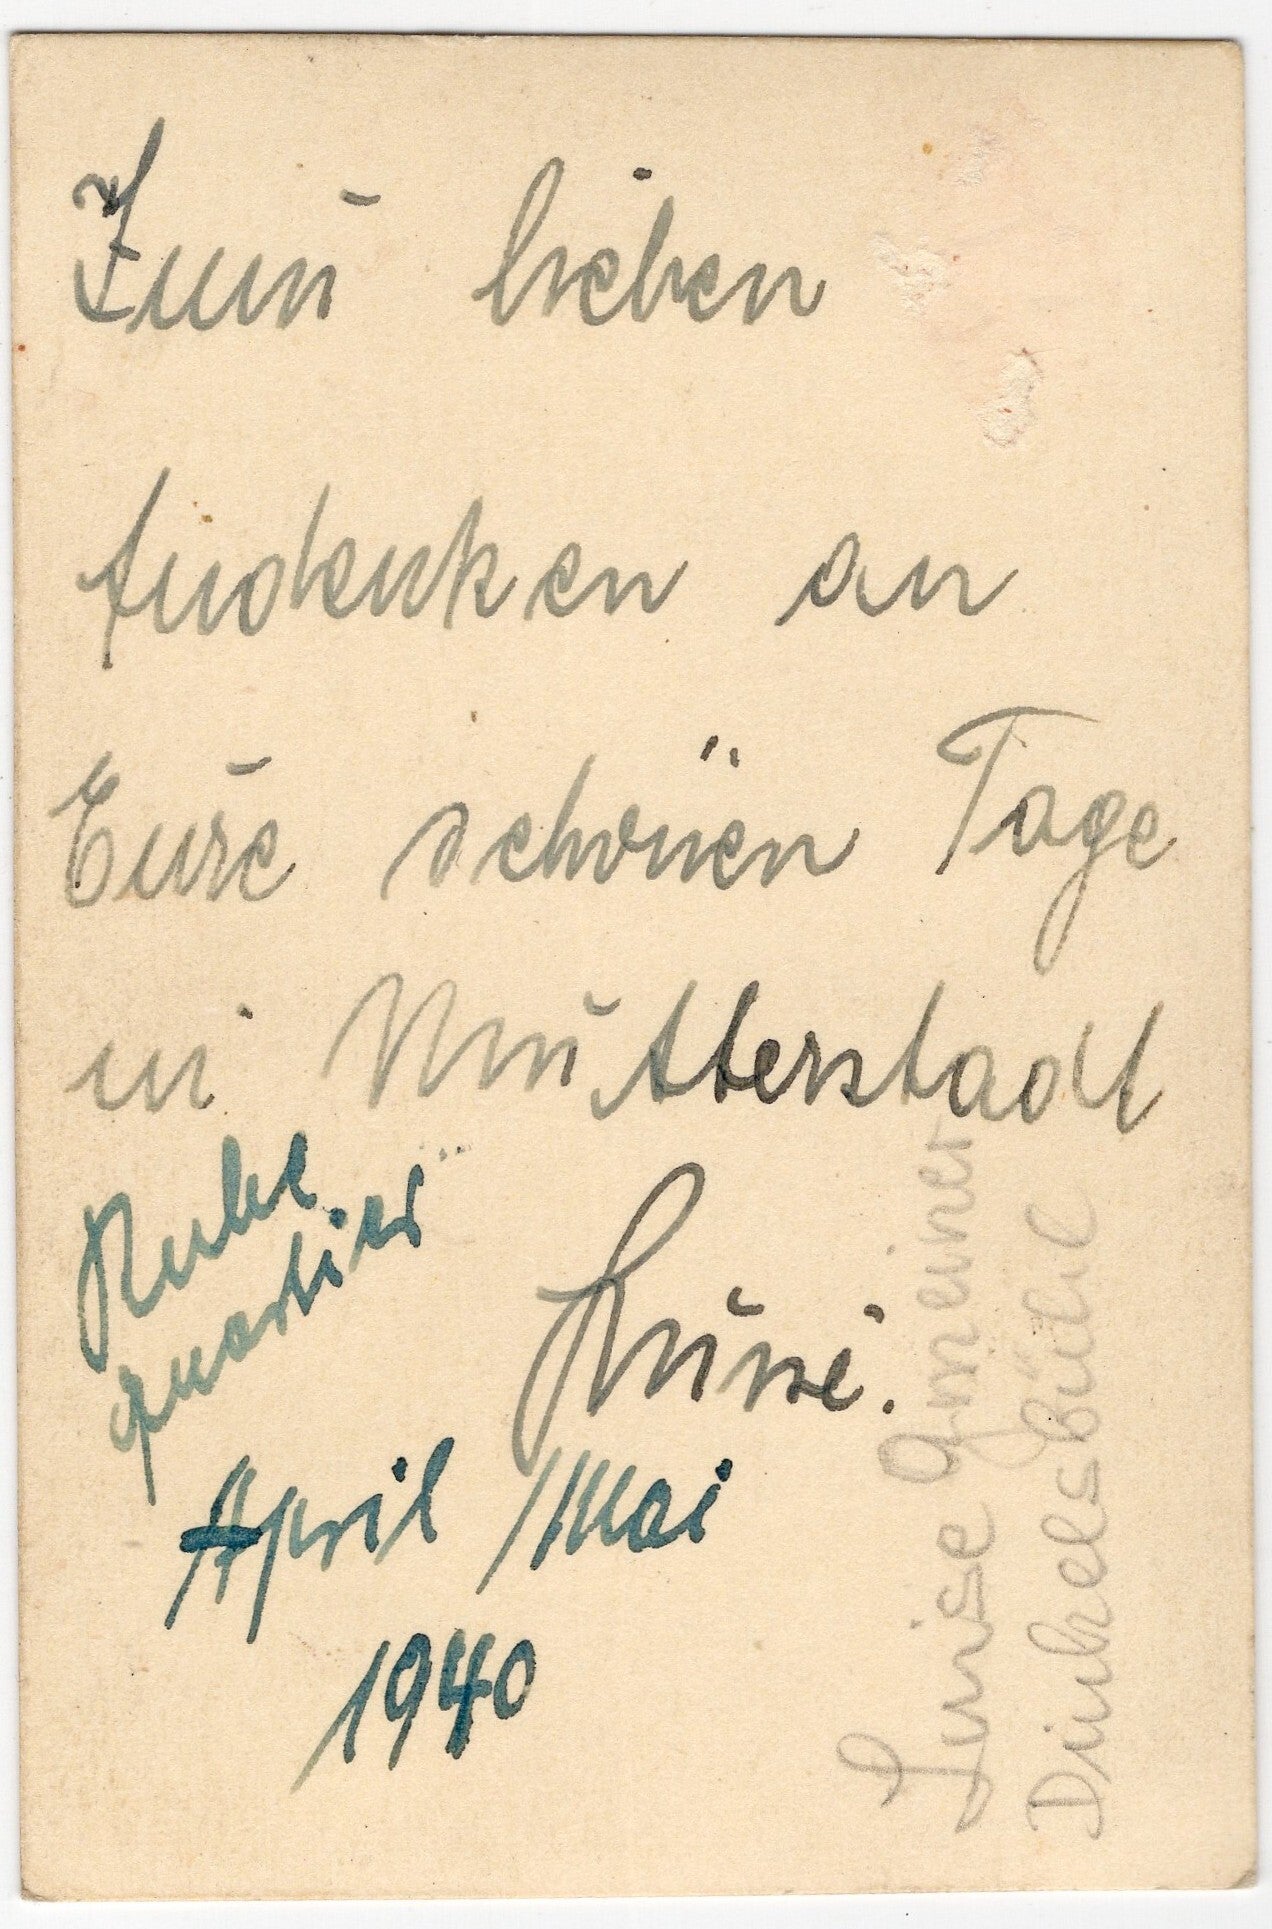 Zum lieben
Andenken an
Eure schönen Tage
in Mutterstadt
Luise.
Ruhe
quartier
April/Mai
1940
Luise Gmeiner
Dinkelsbühl